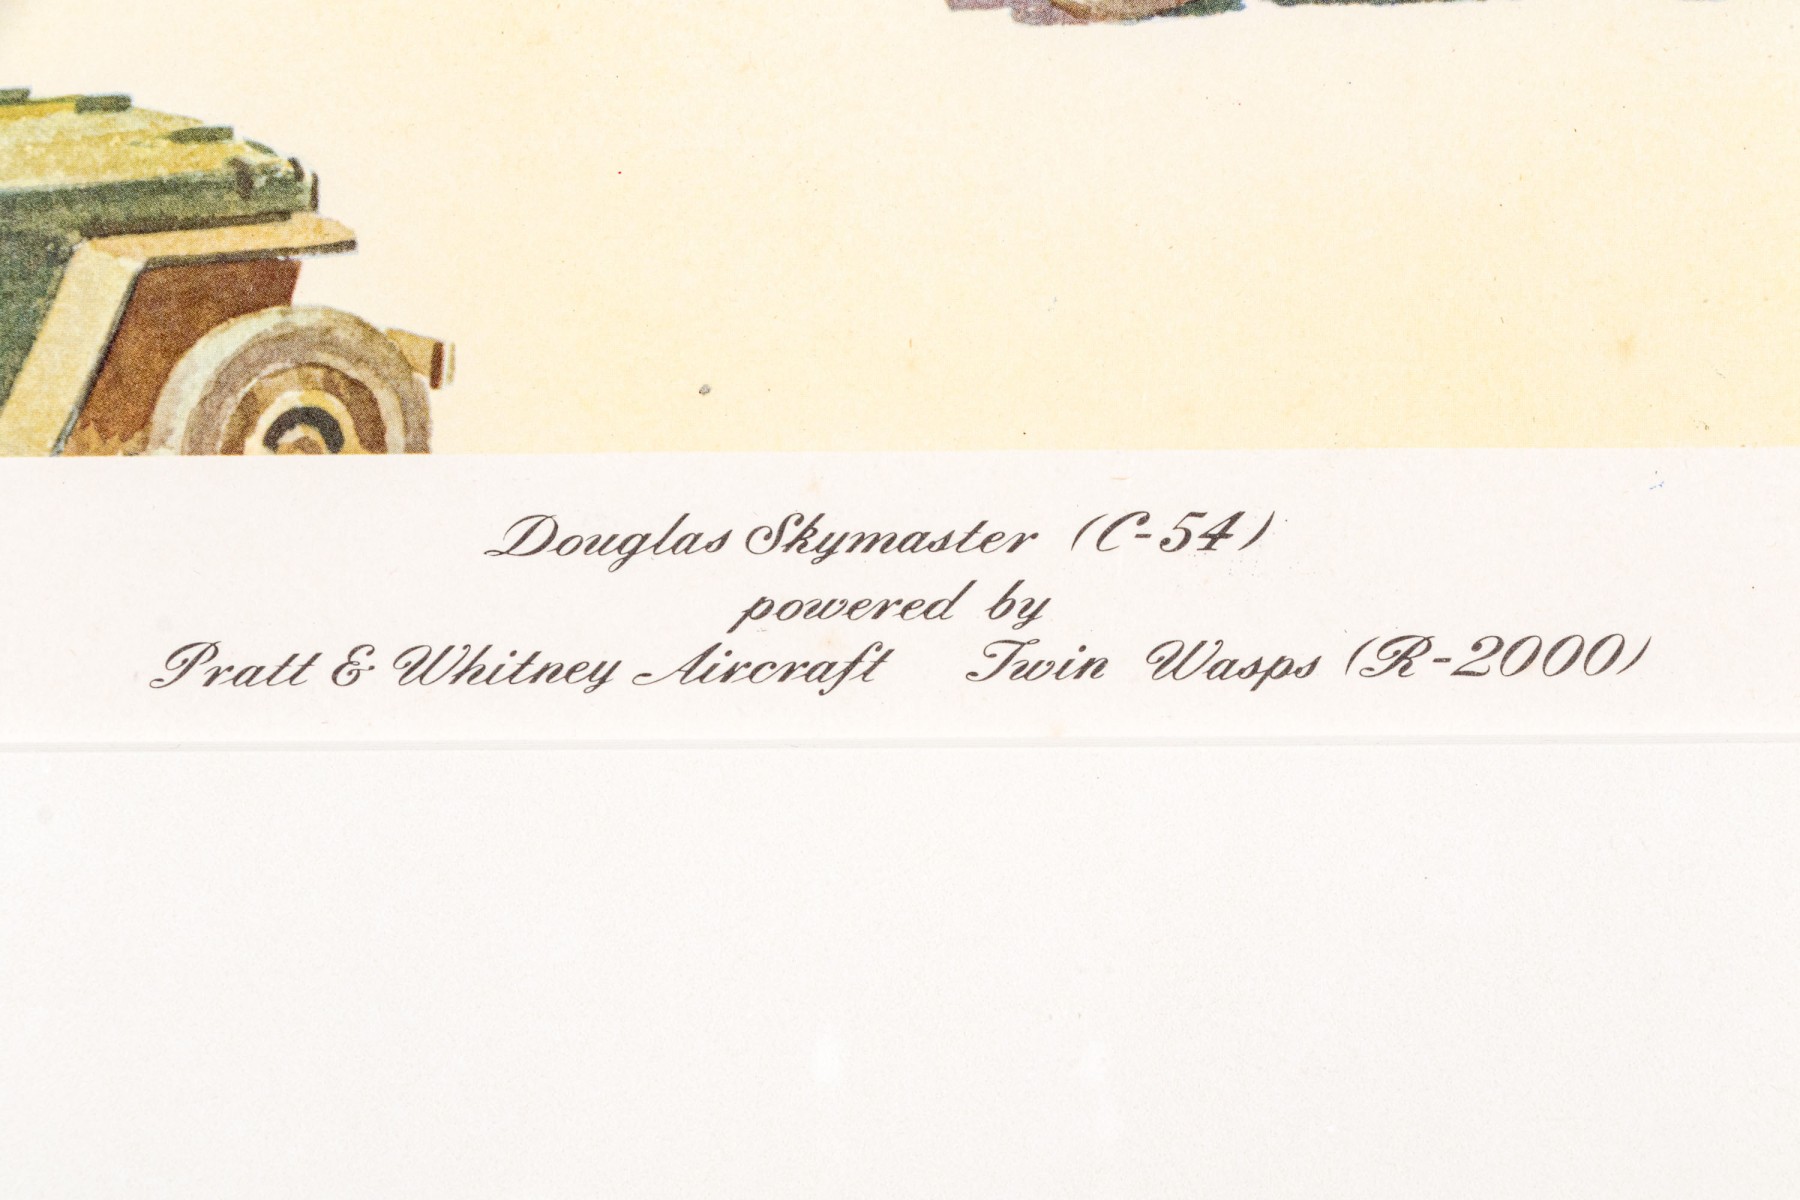 Douglas Skymaster (C-54)
powered by
Pratt & Whitney Aircraft Twin Wasps (R-2000)